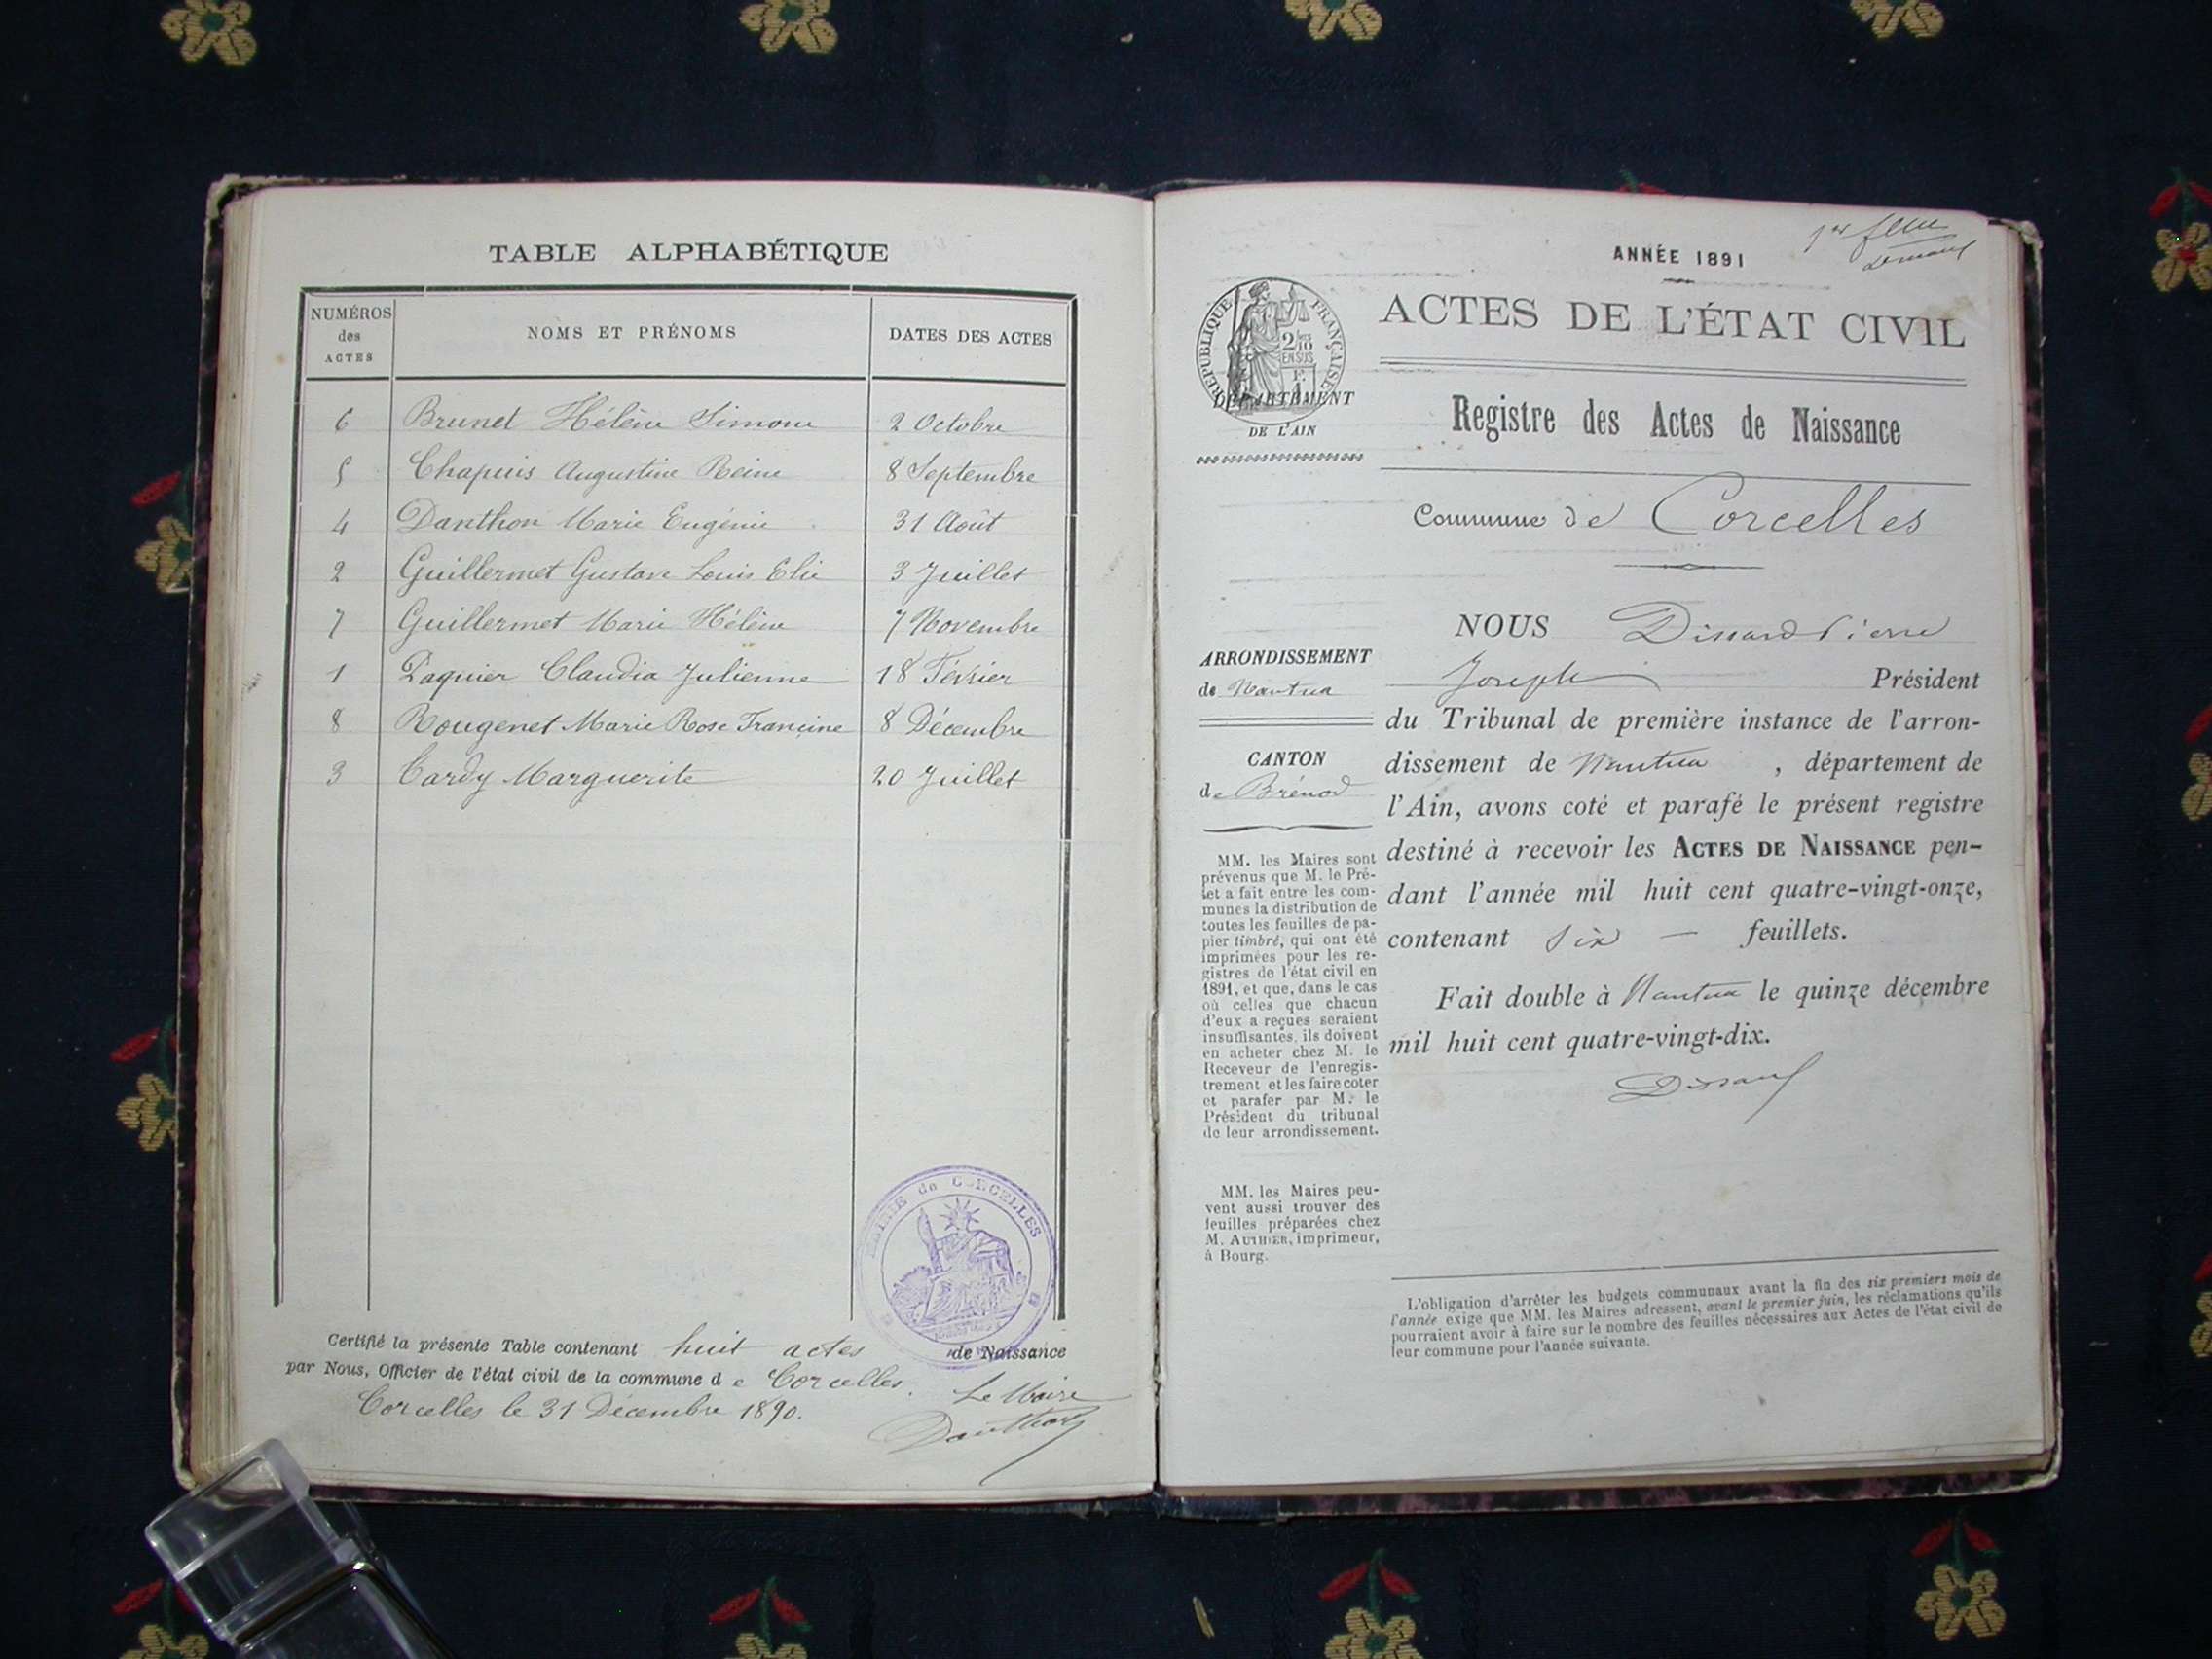 TABLE ALPHABÉTIQUE
NUMÉROS des ACTES
NOMS ET PRÉNOMS
DATES DES ACTES
6 Brunet Hélène Simone 2 Octobre
5 Chapuis Augustine Reine 8 Septembre
4 Danthon Marie Eugénie 31 Août
2 Guillermet Gustave Louis Elie 3 Juillet
7 Guillermet Marie Hélène 7 Novembre
1 Paquier Claudia Julienne 18 Février
8 Rougenet Marie Rose Francine 8 Décembre
3 Tardy Marguerite 20 Juillet
MAIRIE de CORCELLES
Certifié la présente Table contenant huit actes de Naissance
par Nous, Officier de l'état civil de la commune de Corcelles.
Corcelles le 31 Décembre 1890.
Le Maire
Danthon
ANNÉE 1891
1er
RÉPUBLIQUE FRANÇAISE
2/10
EN SUS
DÉPARTEMENT
DE L'AIN
ACTES DE L'ÉTAT CIVIL
Registre des Actes de Naissance
Commune de Corcelles
ARRONDISSEMENT
de Nantua
CANTON
de Brénod
MM. les Maires sont
prévenus que M. le Pré-
fet a fait entre les com-
munes la distribution de
toutes les feuilles de pa-
pier timbré, qui ont été
imprimées pour les re-
gistres de l'état civil en
1891, et que, dans le cas
où celles que chacun
d'eux a reçues seraient
insuffisantes, ils doivent
en acheter chez M. le
Receveur de l'enregis-
trement et les faire coter
et parafer par M. le
Président du tribunal
de leur arrondissement.
MM. les Maires peu-
vent aussi trouver des
feuilles préparées chez
M. AUTHIER, imprimeur,
à Bourg.
NOUS Dissard Pierre
Joseph Président
du Tribunal de première instance de l'arron-
dissement de Nantua , département de
l'Ain, avons coté et parafé le présent registre
destiné à recevoir les ACTES DE NAISSANCE pen-
dant l'année mil huit cent quatre-vingt-onze,
contenant six — feuillets.
Fait double à Nantua le quinze décembre
mil huit cent quatre-vingt-dix.
Dissard
L'obligation d'arrêter les budgets communaux avant la fin des six premiers mois de
l'année exige que MM. les Maires adressent, avant le premier juin, les réclamations qu'ils
pourraient avoir à faire sur le nombre des feuilles nécessaires aux Actes de l'état civil de
leur commune pour l'année suivante.